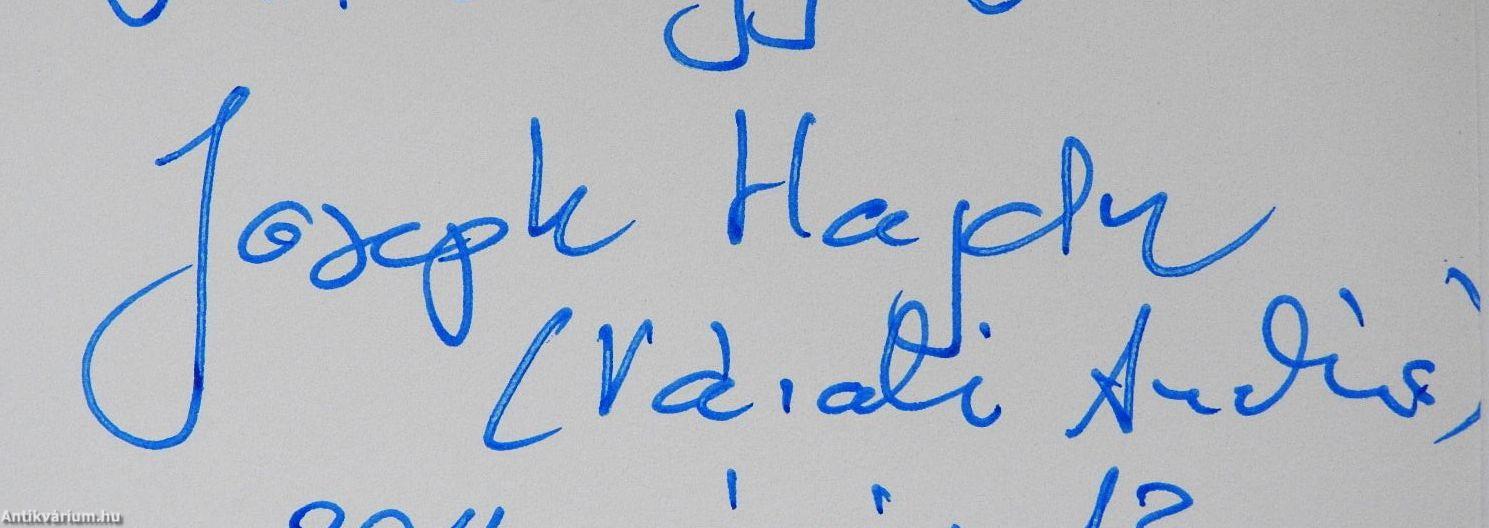 Joseph Haydn
(Váradi András)
Antikvárium.hu